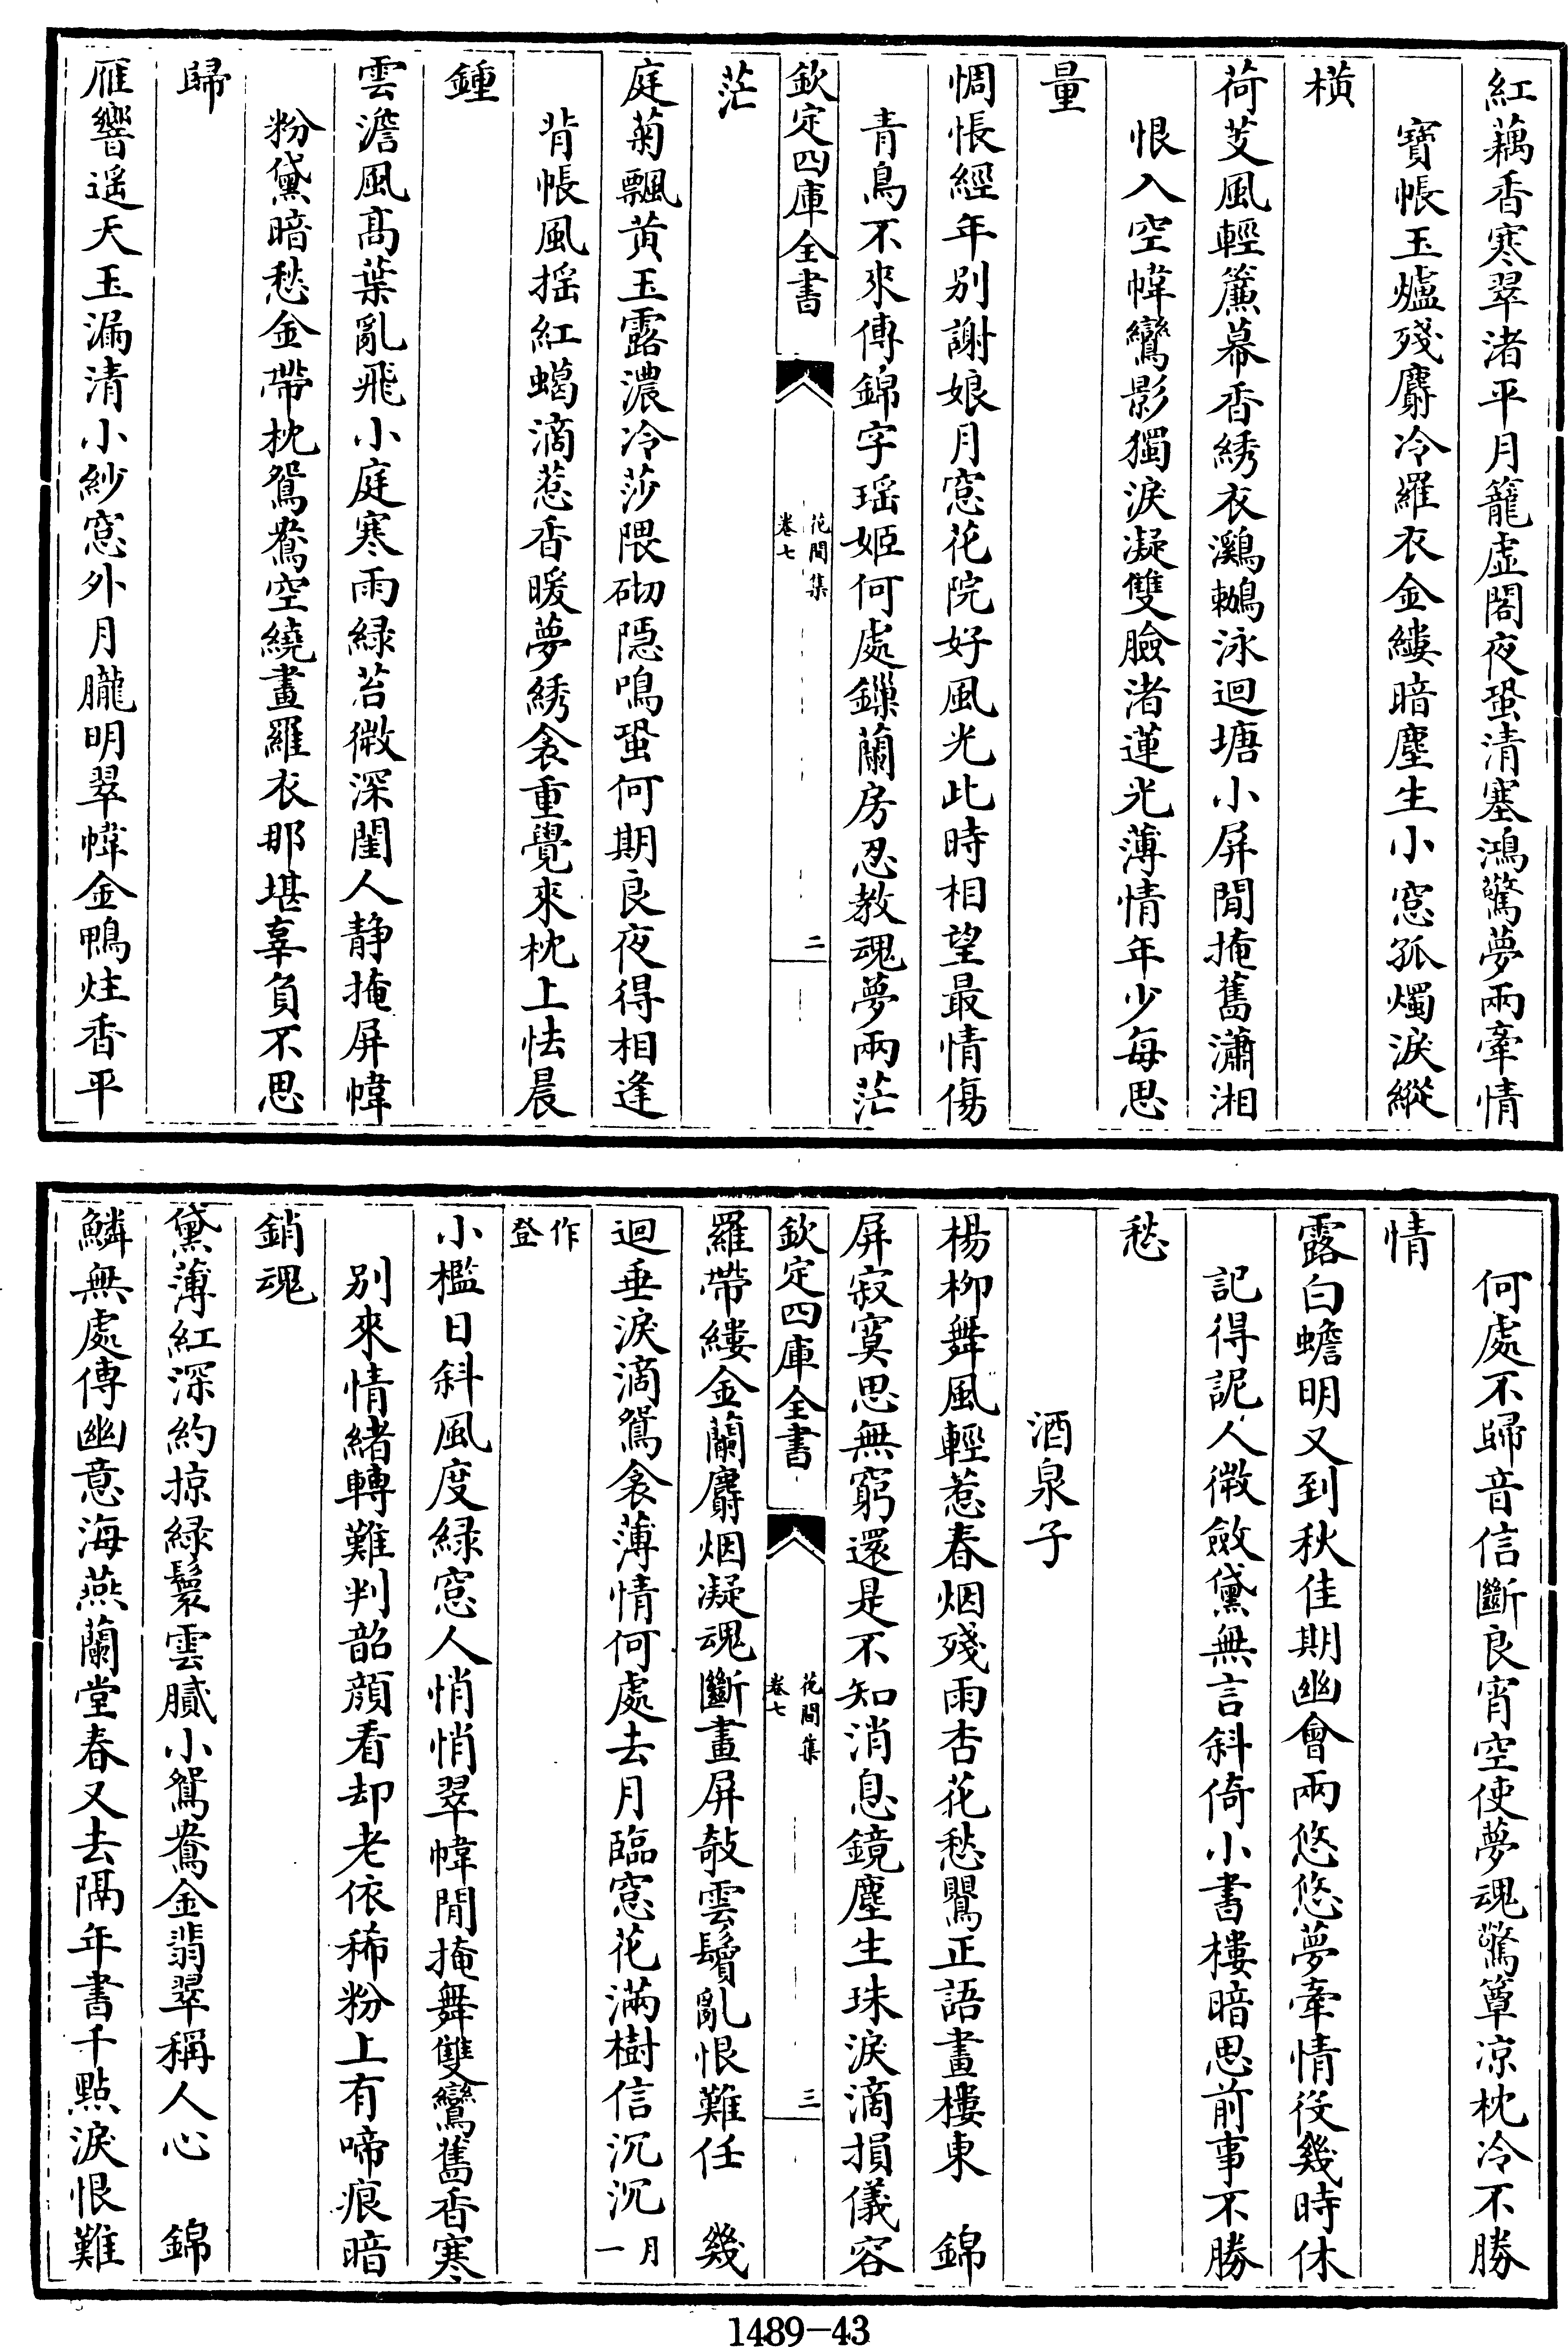 紅藕香寒翠渚平月籠虛閣夜蛩清塞鴻驚夢兩牽情
寶帳玉爐殘麝冷羅衣金縷暗塵生小窓孤燭淚縱
橫
荷芰風輕簾幕香綉衣鸂鶒泳迴塘小屏閒掩舊瀟湘
恨入空幃鸞影獨淚凝雙臉渚蓮光薄情年少每思
量
惆悵經年别謝娘月窓花院好風光此時相望最情傷
青鳥不來傳錦字瑶姬何處鏁蘭房忍教魂夢兩茫
欽定四庫全書
花間集
卷七
二
茫
庭菊飄黃玉露濃冷莎隈砌隱鳴蛩何期良夜得相逢
背帳風摇紅蠟滴惹香暖夢綉衾重覺來枕上怯晨
鍾
雲澹風高葉亂飛小庭寒雨綠苔微深閨人静掩屏幃
粉黛暗愁金帶枕鴛鴦空繞畫羅衣那堪辜負不思
歸
雁響遥天玉漏清小紗窓外月朧明翠幃金鴨炷香平
何處不歸音信斷良宵空使夢魂驚簟凉枕冷不勝
情
露白蟾明又到秋佳期幽會兩悠悠夢牽情役幾時休
記得泥人微斂黛無言斜倚小書樓暗思前事不勝
愁
酒泉子
楊柳舞風輕惹春烟殘雨杏花愁鸎正語畫樓東　錦
屏寂寞思無窮還是不知消息鏡塵生珠淚滴損儀容
欽定四庫全書
花間集
卷七
三
羅帶縷金蘭麝烟凝魂斷畫屏敧雲鬢亂恨難任　幾
迴垂淚滴鴛衾薄情何處去月臨窓花滿樹信沉沉月一
作登
小檻日斜風度綠窓人悄悄翠幃閒掩舞雙鸞舊香寒
别來情緒轉難判韶顔看却老依稀粉上有啼痕暗
銷魂
黛薄紅深約掠綠鬟雲膩小鴛鴦金翡翠稱人心　錦
鱗無處傳幽意海燕蘭堂春又去隔年書千點淚恨難
1489-43